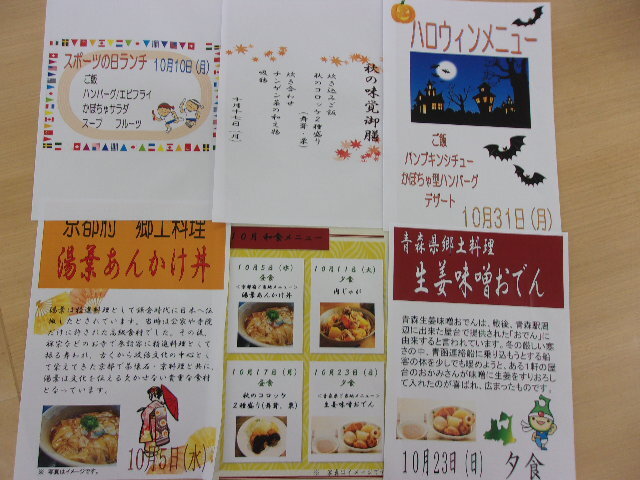 スポーツの日ランチ 10月10日(月)
ご飯
ハンバーグ/エビフライ
かぼちゃサラダ
スープ フルーツ
秋の味覚御膳
炊き込みご飯
秋のコロッケ2種盛り
(舞茸・栗)
炊き合わせ
チンゲン菜の和え物
吸物
十月十七日(月)
ハロウィンメニュー
ご飯
パンプキンシチュー
かぼちゃ型ハンバーグ
デザート
10月31日(月)
京都府 郷土料理
湯葉あんかけ丼
湯葉は精進料理として鎌倉時代に日本へ伝
来したとされています。当時は公家や寺院
だけに許された高級食材でした。その後、
禅宗などのお寺で参詣客に精進料理として
振る舞われ、古くから政治文化の中心とし
て栄えてきた京都で茶懐石・京料理と共に、
湯葉は文化を伝える欠かせない貴重な食材
となっています。
※ 写真はイメージです。
10月5日(水)
10月 和食メニュー
10月5日(水)
昼食
湯葉あんかけ丼
10月11日(火)
夕食
肉じゃが
10月17日(月)
昼食
秋のコロッケ
2種盛り(舞茸、栗)
10月23日(日)
夕食
生姜味噌おでん
※写真はイメージです
青森県郷土料理
生姜味噌おでん
青森生姜味噌おでんは、戦後、青森駅周
辺に出来た屋台で提供された「おでん」に
由来すると言われています。冬の厳しい寒
さの中、青函連絡船に乗り込もうとする船
客の体を少しでも暖めようと、ある1軒の屋
台のおかみさんが味噌に生姜をすりおろし
て入れたのが喜ばれ、広まったものです。
10月23日(日) 夕食